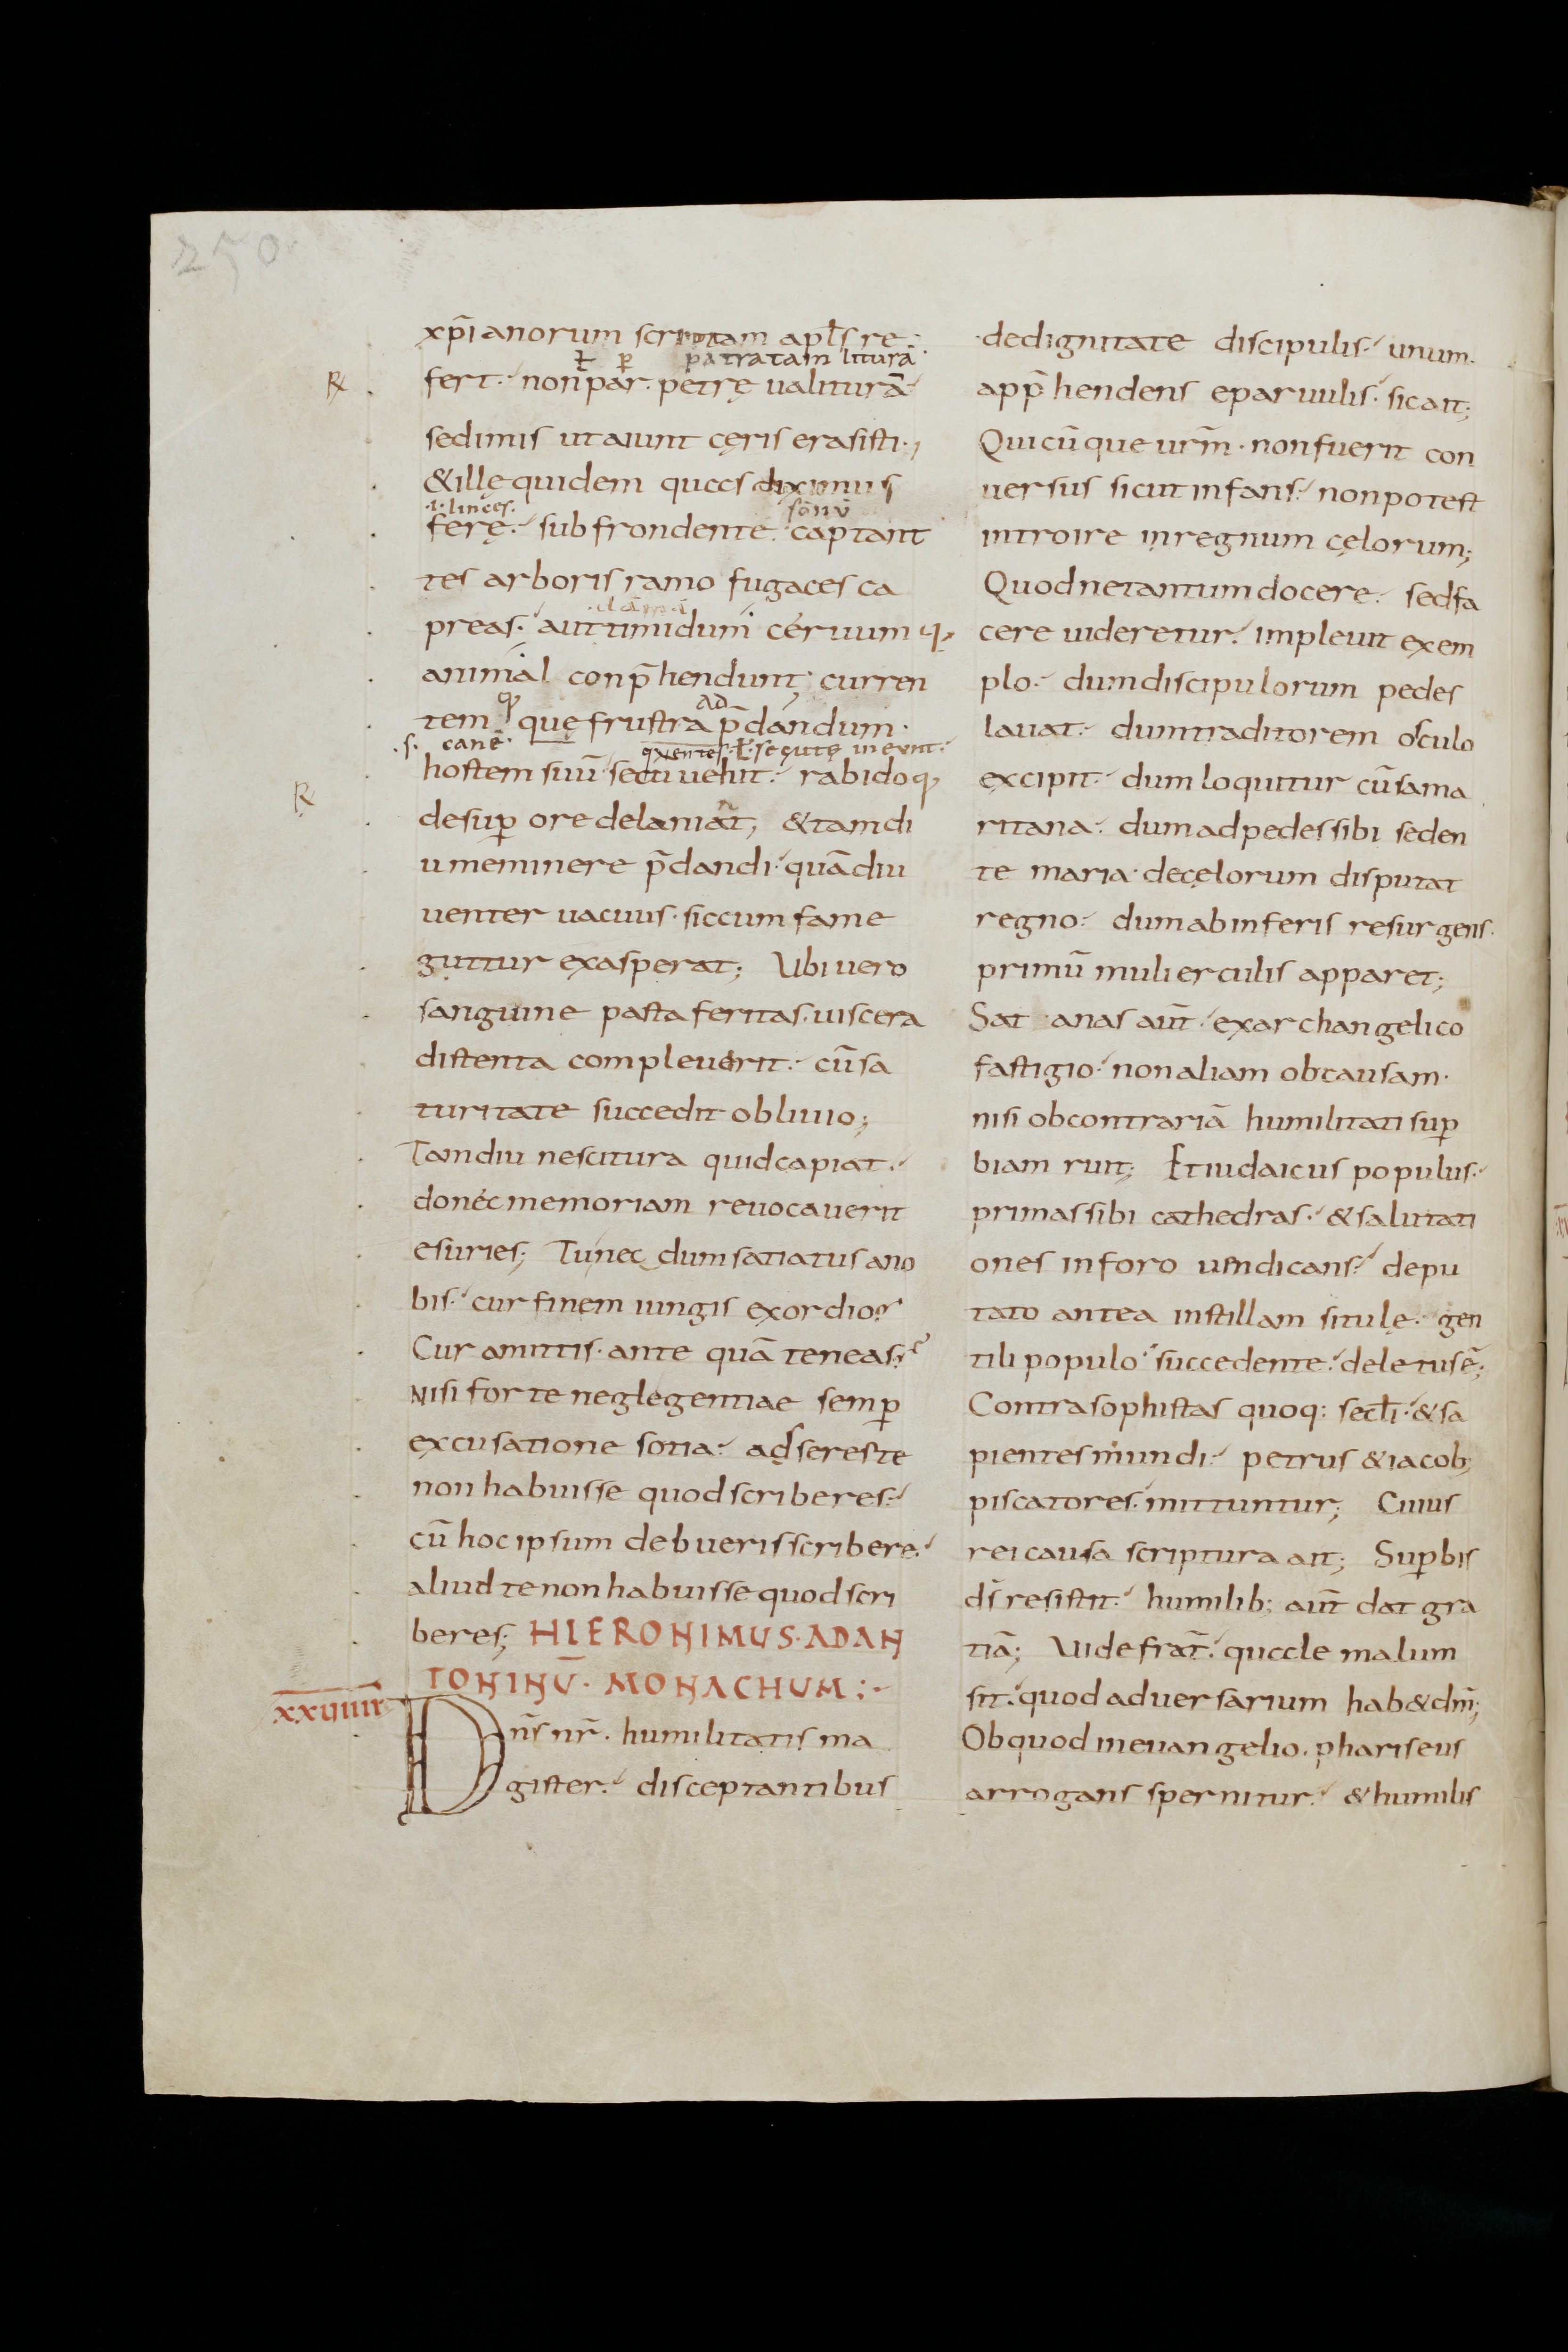 250
xp̄ianorum scriptam apl̄s re
ł p̱ patratam liturā
fert. non par. petrę ualiturā
sed imis ut aiunt cęris erasisti.
& illę quidem quas diximus
.i. linces. sonū
ferę. sub frondente captant
tes arboris ramo fugaces ca
preas. aut timidum ceruum q;
animal conp̄hendunt; curren
q; AD
tem quę frustra p̄dandum.
.s. canē. quientes. ł. secute ineunt.
hostem suū secū uehit. rabido q;
desuꝑ ore delaniāt; & tamdi
u meminere p̄dandi. quādiu
uenter uacuus. siccum fame
guttur exasperat; Ubi uero
sanguine pasta feritas. uiscera
distenta compleuerit. cū sa
turitate succedit obliuio;
Tamdiu nescitura quid capiat.
donec memoriam reuocauerit
esuries; Tu nec dum satiatus a no
bis. cur finem iungis exordio?
Cur amittis. ante quā teneas?
Nisi forte neglegentiae semꝑ
excusatione sotia. adseres te
non habuisse quod scriberes.
cū hoc ipsum debueris scribere.
aliud te non habuisse quod scri
beres; HIERONIMUS. AD AN
TONINŪ. MONACHUM:
xxiiiii
Dn̄s nr̄. humilitatis ma
gister. disceptantibus
de dignitate discipulis. unum.
app̄hendens e paruulis. sic ait;
Quicūque ur̄m. non fuerit con
uersus sicut infans. non potest
introire in regnum cęlorum;
Quod ne tantum docere. sed fa
cere uideretur. impleuit exem
plo. dum discipulorum pedes
lauat. dum traditorem osculo
excipit. dum loquitur cū sama
ritana. dum ad pedes sibi seden
te maria. de cęlorum disputat
regno. dum ab inferis resurgens.
primū mulierculis apparet;
Satanas aūt. ex archangelico
fastigio. non aliam ob causam.
nisi ob contrariā humilitati suꝑ
biam ruit; Et iudaicus populus.
primas sibi cathedras. & salutati
ones in foro uendicans. depu
tato antea in stillam situlę. gen
tili populo succedente. deletus ē;
Contra sophistas quoq: secl̄i. & sa
pientes mundi. petrus & iacob;
piscatores. mittuntur; Cuius
rei causa scriptura ait; Suꝑbis
dī resistit. humilib; aūt dat gra
tiā; Uide frat̄. quale malum
sit. quod aduersarium hab& dm̄;
Ob quod in euangelio. phariseus
arrogans spernitur. & humilis